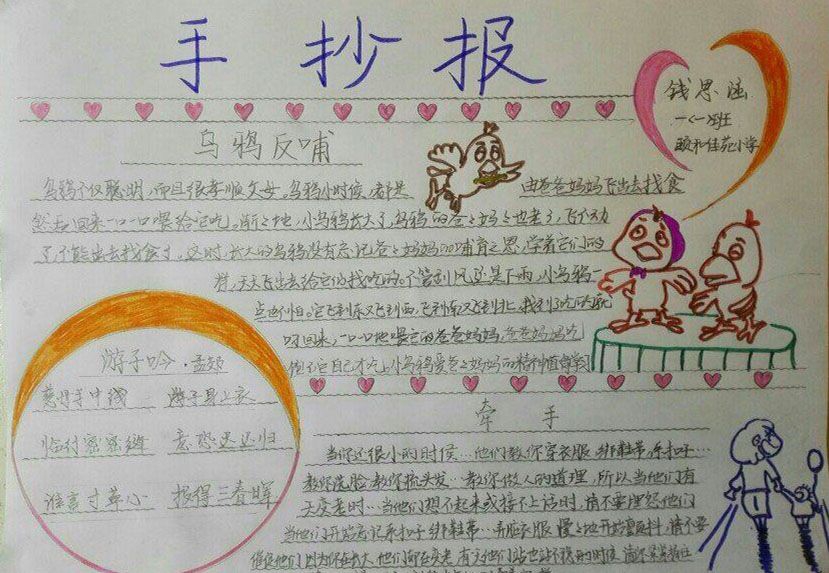 手抄报
钱思涵
一〈一〉班
颐和佳苑小学
乌鸦反哺
乌鸦不仅聪明,而且很孝顺父母。乌鸦小时候,都是由爸爸妈妈飞出去找食
然后回来一口一口喂给它吃。渐渐地,小乌鸦长大了,乌鸦的爸々妈々也老了,飞不动
了,不能出去找食了,这时,长大的乌鸦没有忘记爸々妈妈的哺育之恩,学着它们的
样,天天飞出去给它们找吃的。不管刮风还是下雨,小乌鸦一
点也不
飞到东又飞到西,飞到南又飞到北,找到了吃的就
回来,一口一口地喂它的爸爸妈妈,爸爸妈妈吃
饱了它自己才吃。小乌鸦爱爸々妈妈的精神值得学习
游子吟·孟郊
慈母手中线 游子身上衣
临行密密缝 意恐迟迟归
谁言寸草心 报得三春晖
牵手
当你还很小的时候…他们教你穿衣服,绑鞋带,系扣子…
教你洗脸,教你梳头发…教你做人的道理,所以当他们有
天变老时…当他们想不起来或接不上话时,请不要埋怨他们
当他们开始忘记系扣子,绑鞋带…弄脏衣服,慢々地开始颤抖,请不要
催促他们,因为你在长大,他们却在变老